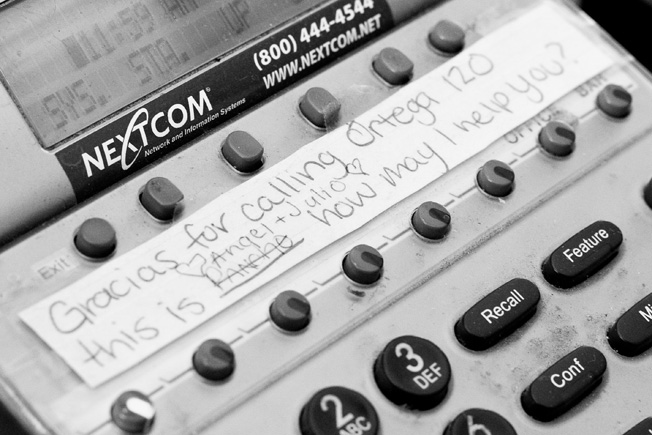 (800) 444-4544
WWW.NEXTCOM.NET
SYS. STB. UP
NEXTCOM®
Network and Information Systems
Exit
Gracias for calling Ortega 120
♡ Angel + Julio ♡
this is PANCHO how may I help you?
Feature
Recall
Conf
3
DEF
2
ABC
6